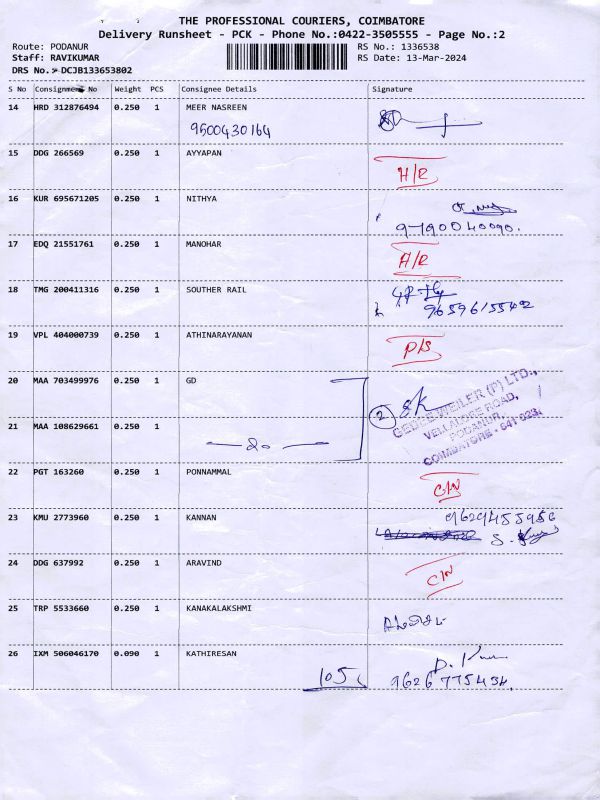 THE PROFESSIONAL COURIERS, COIMBATORE
Delivery Runsheet - PCK - Phone No.:0422-3505555 - Page No.:2
Route: PODANUR RS No.: 1336538
Staff: RAVIKUMAR RS Date: 13-Mar-2024
DRS No. DCJB133653802
S No Consignment No Weight PCS Consignee Details Signature
14 HRD 312876494 0.250 1 MEER NASREEN
9500430164
15 DDG 266569 0.250 1 AYYAPAN
H/R
16 KUR 695671205 0.250 1 NITHYA
9790040090.
17 EDQ 21551761 0.250 1 MANOHAR
H/R
18 TMG 200411316 0.250 1 SOUTHER RAIL
9659615542
19 VPL 404000739 0.250 1 ATHINARAYANAN
P/S
20 MAA 703499976 0.250 1 GD
2
GEDEE WEILER (P) LTD.,
VELLALORE ROAD,
PODANUR,
COIMBATORE - 641 023.
21 MAA 108629661 0.250 1
— do —
22 PGT 163260 0.250 1 PONNAMMAL
C/N
23 KMU 2773960 0.250 1 KANNAN
9629455956
24 DDG 637992 0.250 1 ARAVIND
C/N
25 TRP 5533660 0.250 1 KANAKALAKSHMI
26 IXM 506046170 0.090 1 KATHIRESAN
105
9626775434.